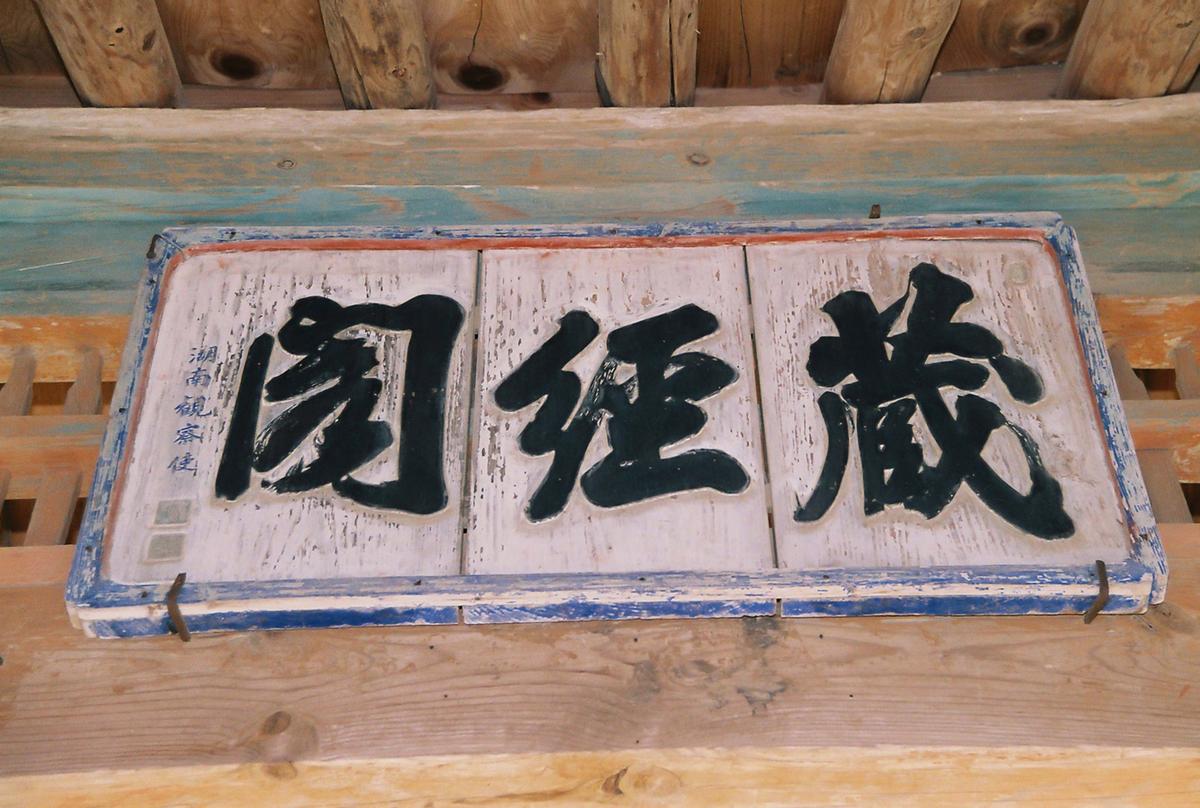 藏經閣
湖南観察使